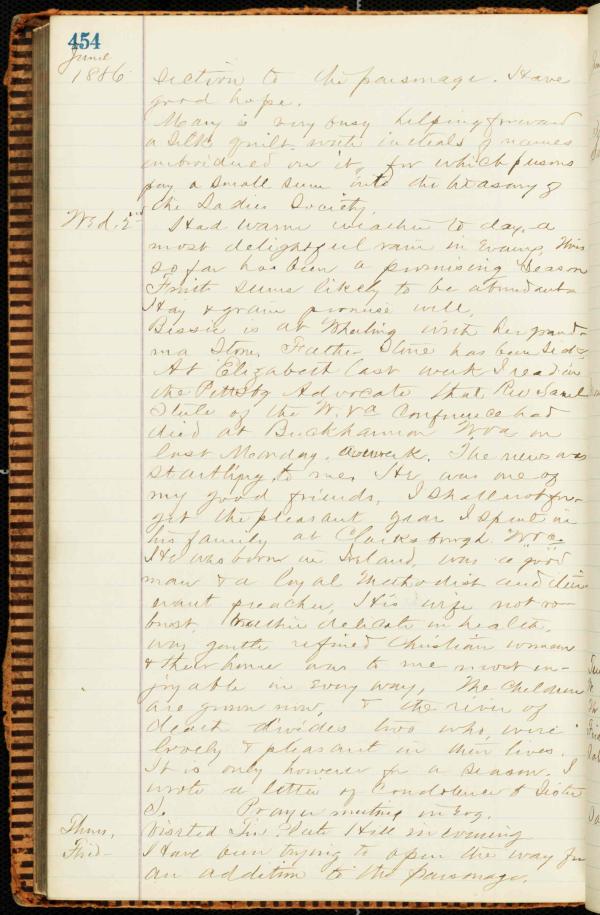 454
June
1886 section to the parsonage. Have
good hope.
Mary is very busy helping forward
a silk quilt with initials of names
embroidered on it, for which persons
pay a small sum into the treasury of
the Ladies Society.
Wed, 2nd Had warm weather to day, a
most delightful rain in Evening. This
so far has been a promising season
Fruit seems likely to be abundant
Hay & grain promise well.
Bessie is at Wheeling with her grand-
ma Stone, Father Stone has been sick.
At Elizabeth last week I read in
the Pittsbg Advocate that Rev Saml
of the W. Va Conference had
died at Buckhannon W Va on
last Monday, a week. The news was
startling to me. He was one of
my good friends, I shall not for-
get the pleasant year I spent in
his family at Clarksburgh W Va
He was born in Ireland, was a good
man & a loyal Methodist and itin-
erant preacher, His wife not ro-
bust, rather delicate in health,
was gentle refined Christian woman
& their home was to me most en-
joyable in every way, The children
are grown now, & the river of
death divides two who were
lovely & pleasant in their lives.
It is only however for a season. I
wrote a letter of Condolence to Sister
S. Prayer meeting in Evg.
Thurs, Visited Hill in evening
Frid- I Have been trying to open the way for
an addition to the parsonage.